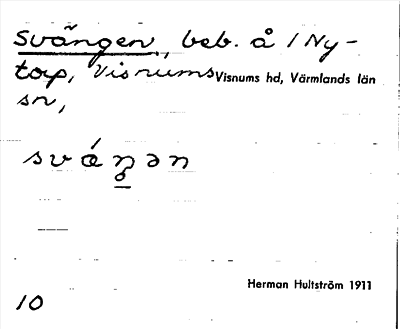 Svängen, beb. å 1 Ny-
torp, Visnums Visnums hd, Värmlands län
sn,
Herman Hultström 1911
10